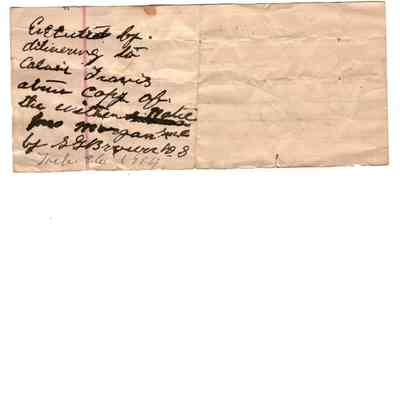 Executed by
delivering to
Calvin Travis
a true copy of
the within Notice
Jno Morgan
by G G Brown D S